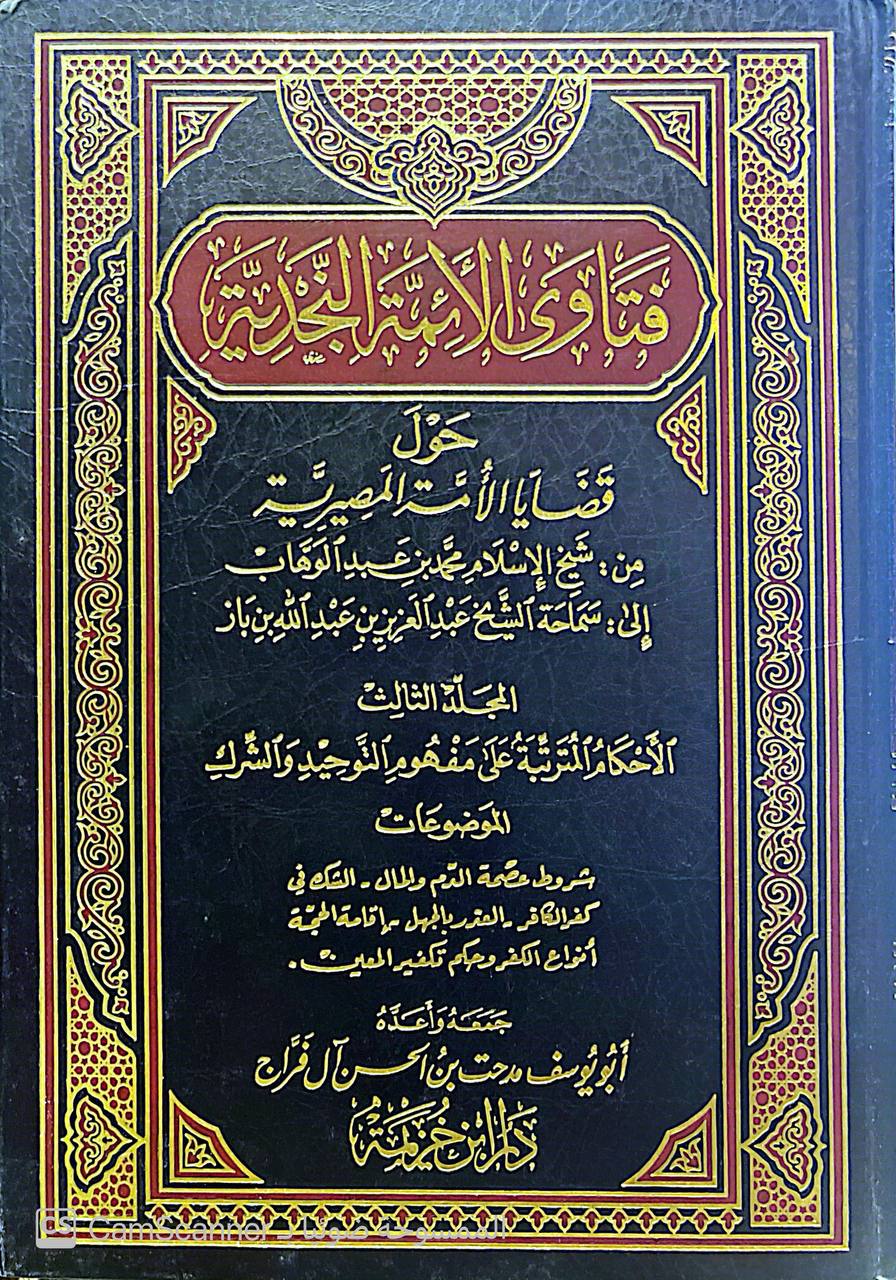 فَتَاوَى الأَئِمَّةِ النَّجْدِيَّةِ
حَوْلَ
قَضَايَا الأُمَّةِ المَصِيرِيَّةِ
مِن : شَيْخِ الإِسْلَامِ مُحَمَّدِ بنِ عَبدِ الوَهَّابِ
إِلىٰ : سَمَاحَةِ الشَّيْخِ عَبْدِ العَزِيزِ بنِ عَبْدِ اللهِ بنِ بَاز
المجَلّد الثالِث
الأَحْكَامُ المُتَرَتِّبَةُ عَلَىٰ مَفْهُومِ التَّوحِيْدِ وَالشِّركِ
الموَضوعَات
شروط عصْمة الدّم والمال - الشك في
كفر الكافر - العذر بالجهل - إقامة الحجّة
أنواع الكفر وحكم تكفير المعين .
جَمَعَهُ وَأَعَدَّهُ
أَبُو يُوسف مدحت بنُ الحسن آل فَرَّاج
دَار ابن خُزيمَة
CS CamScanner الممسوحة ضوئيا بـ